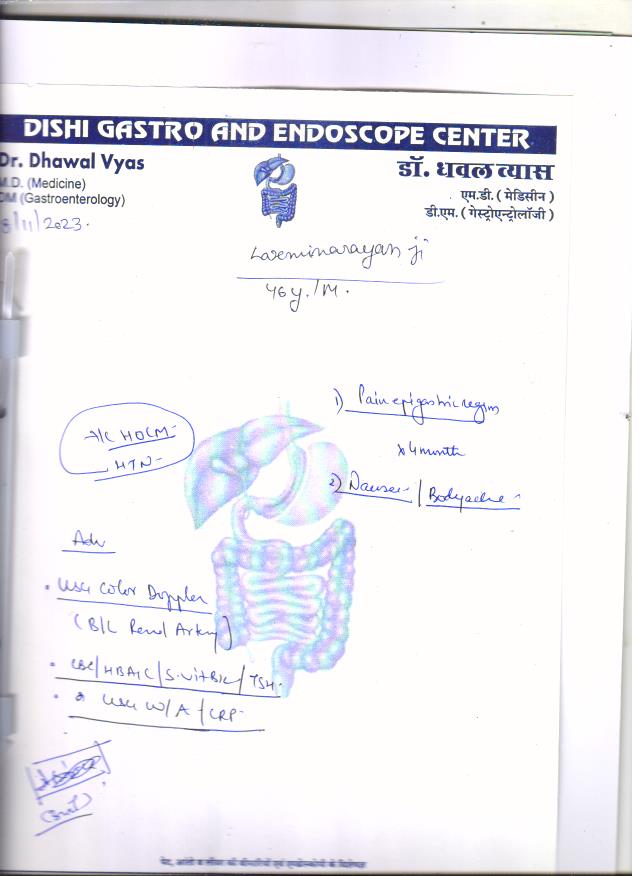 DISHI GASTRO AND ENDOSCOPE CENTER
Dr. Dhawal Vyas
M.D. (Medicine)
DM (Gastroenterology)
डॉ. धवल व्यास
एम.डी. ( मेडिसीन )
डी.एम. ( गेस्ट्रोएन्ट्रोलॉजी )
8/11/2023.
Laxminarayan ji
46 y. / M.
1) Pain epigastric region
x 4 month
2) Nausea / Bodyache
K/C HOCM
HTN
Adv
• USG Color Doppler
(B/L Renal Artery)
• CBC / HBA1C / S.Vit B12 / TSH
• USG W/A / CRP
पेट, आंतों व लीवर की बीमारियों एवं एण्डोस्कोपी के विशेषज्ञ